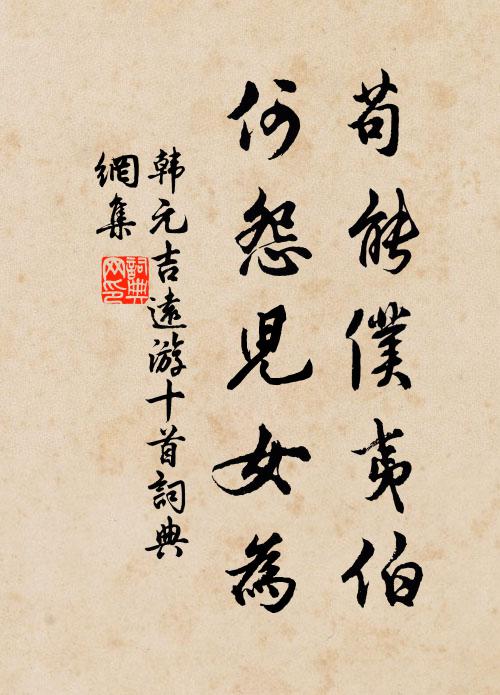 苟能僕夷伯
何怨兒女為
韩元吉遠游十首詞典
網集
詞典
网印